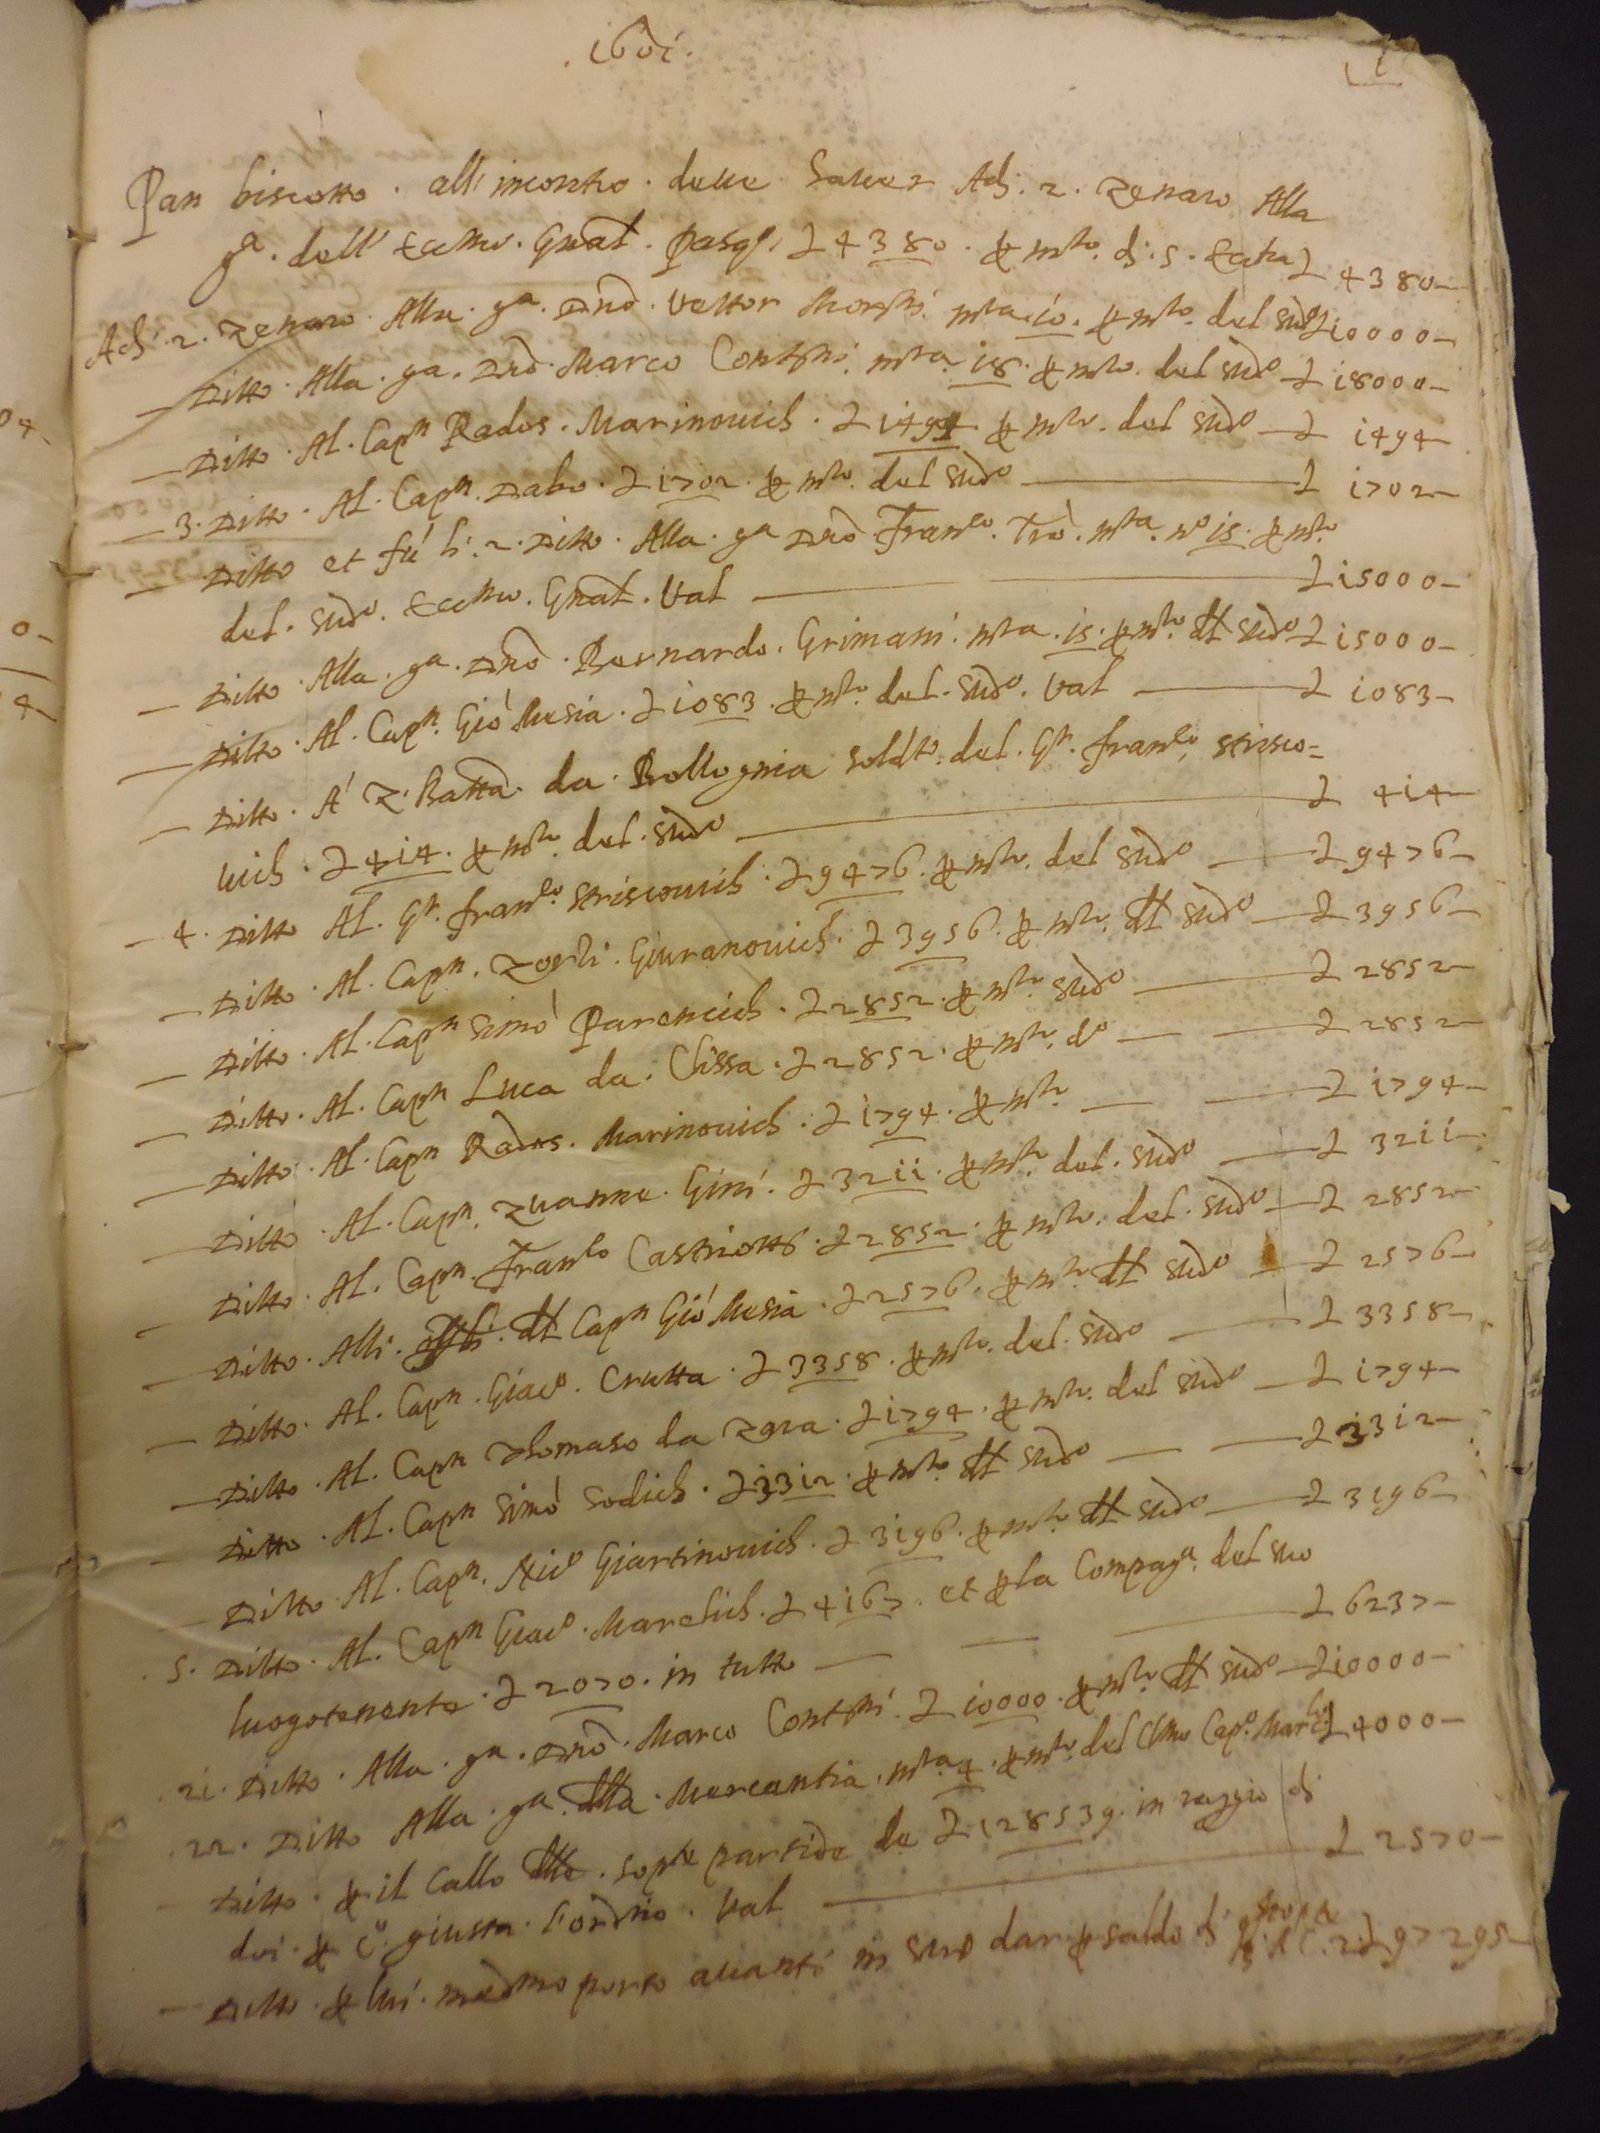 1601.
1
Pan biscotto. all'incontro. deue Sauer Adi. 2. Zenaro Alla
ga. dell' Eccmo. Gnal. Pasqe. L 4380. p mto. di. s. Ecctia L 4380
Adi. 2. Zenaro. Alla. ga. Dno. Vettor mta. io. p mto. del sudo L 10000
Ditto. Alla. ga. Dno. Marco Contni. mta. 18. p mto. del sudo L 18000
Ditto. Al. Capn Rados. Marinouich. L 1494 p mto. del sudo L 1494
3. Ditto. Al. Capn. Dabo. L 1702. p mto. del sudo L 1702
Ditto et fú li. 2. Ditto. Alla. ga Dno Franco. Trò. mta. no is. p mto
del. sudo. Eccmo. Gnal. Val L 15000
Ditto. Alla. ga. Dno. Bernardo. Grimani. mta. is. p mto. dl sudo L 15000
Ditto. Al. Capn. Gió Musia. L 1083. p mto. del. sudo. Val L 1083
Ditto. A' Z. Batta. da. Bollognia soldto. del. Gr. franco. strisco=
uich. L 414. p mto. del. sudo L 414
4. Ditto Al. Gr. franco. striscouich. L 9476. p mto. del sudo L 9476
Ditto. Al. Capn. Giuranouich. L 3956. p mto. dl sudo L 3956
Ditto. Al. Capn Simó Parencich. L 2852. p mto. sudo L 2852
Ditto. Al. Capn Luca da. Clissa. L 2852. p mto. do L 2852
Ditto. Al. Capn Rados. Marinouich. L 1794. p mto L 1794
Ditto. Al. Capn. Zuanne. Gini. L 3211. p mto. del. sudo L 3211
Ditto. Al. Capn. Franco Castriotto. L 2852. p mto. del. sudo L 2852
Ditto. Alli. dl Capn Gió Musia. L 2576. p mto. dl sudo L 2576
Ditto. Al. Capn. Giaco. Crutta. L 3358. p mto. del. sudo L 3358
Ditto. Al. Capn Thomaso da Zara. L 1794. p mto. del sudo L 1794
Ditto. Al. Capn Simó Sodich. L 3312. p mto dl sudo L 3312
Ditto. Al. Capn. Nico Giartinouich. L 3196. p mto dl sudo L 3196
5. Ditto. Al. Capn Giaco. Marelich. L 4167. et p la Compaga. del suo
luogotenente. L 2070. in tutto L 6237
21. Ditto. Alla. ga. Dno. Marco Contni. L 10000. p mto dl sudo L 10000
22. Ditto Alla. ga. dlla. Mercantia. mta 4. p mto. del Clmo Capo. L 4000
Ditto. p il Callo dlle. sopte partide de L 128539. in raggio di
doi. p co. giusta. l'ordno. Val L 2570
Ditto. p lui. medmo porto auanti in suo dar p saldo di L 97295